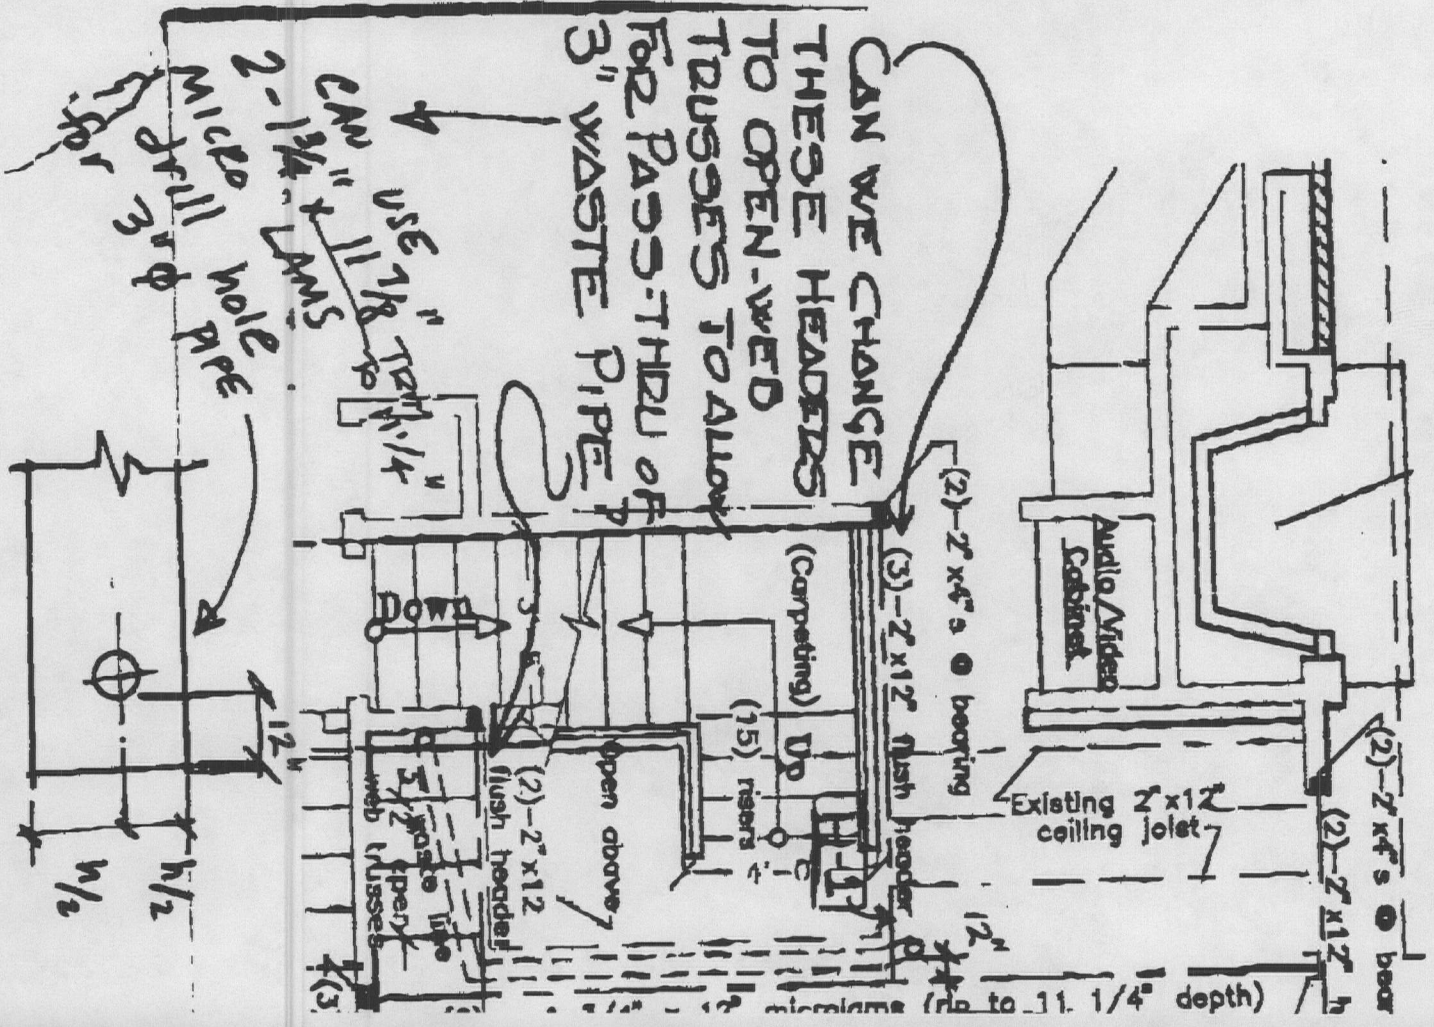 CAN WE CHANGE
THESE HEADERS
TO OPEN-WEB
TRUSSES TO ALLOW
FOR PASS-THRU OF
3" WASTE PIPE ?
CAN USE
2-1 3/4" x 11 7/8" TRIM TO 11 1/4"
MICRO LAMS
drill hole
for 3"φ PIPE
12"
h/2
h/2
(2)-2"x4"s @ bearing
(3)-2"x12" flush header
(Carpeting)
Up
(15) risers
Down
Open above
(2)-2"x12
flush header
waste line
open
web trusses
12"
(3
Audio/Video
Cabinet
Existing 2"x12"
ceiling joist
(2)-2"x4"s @ bear
(2)-2"x12" h
3/4" x 12" microlams (rip to 11 1/4" depth)